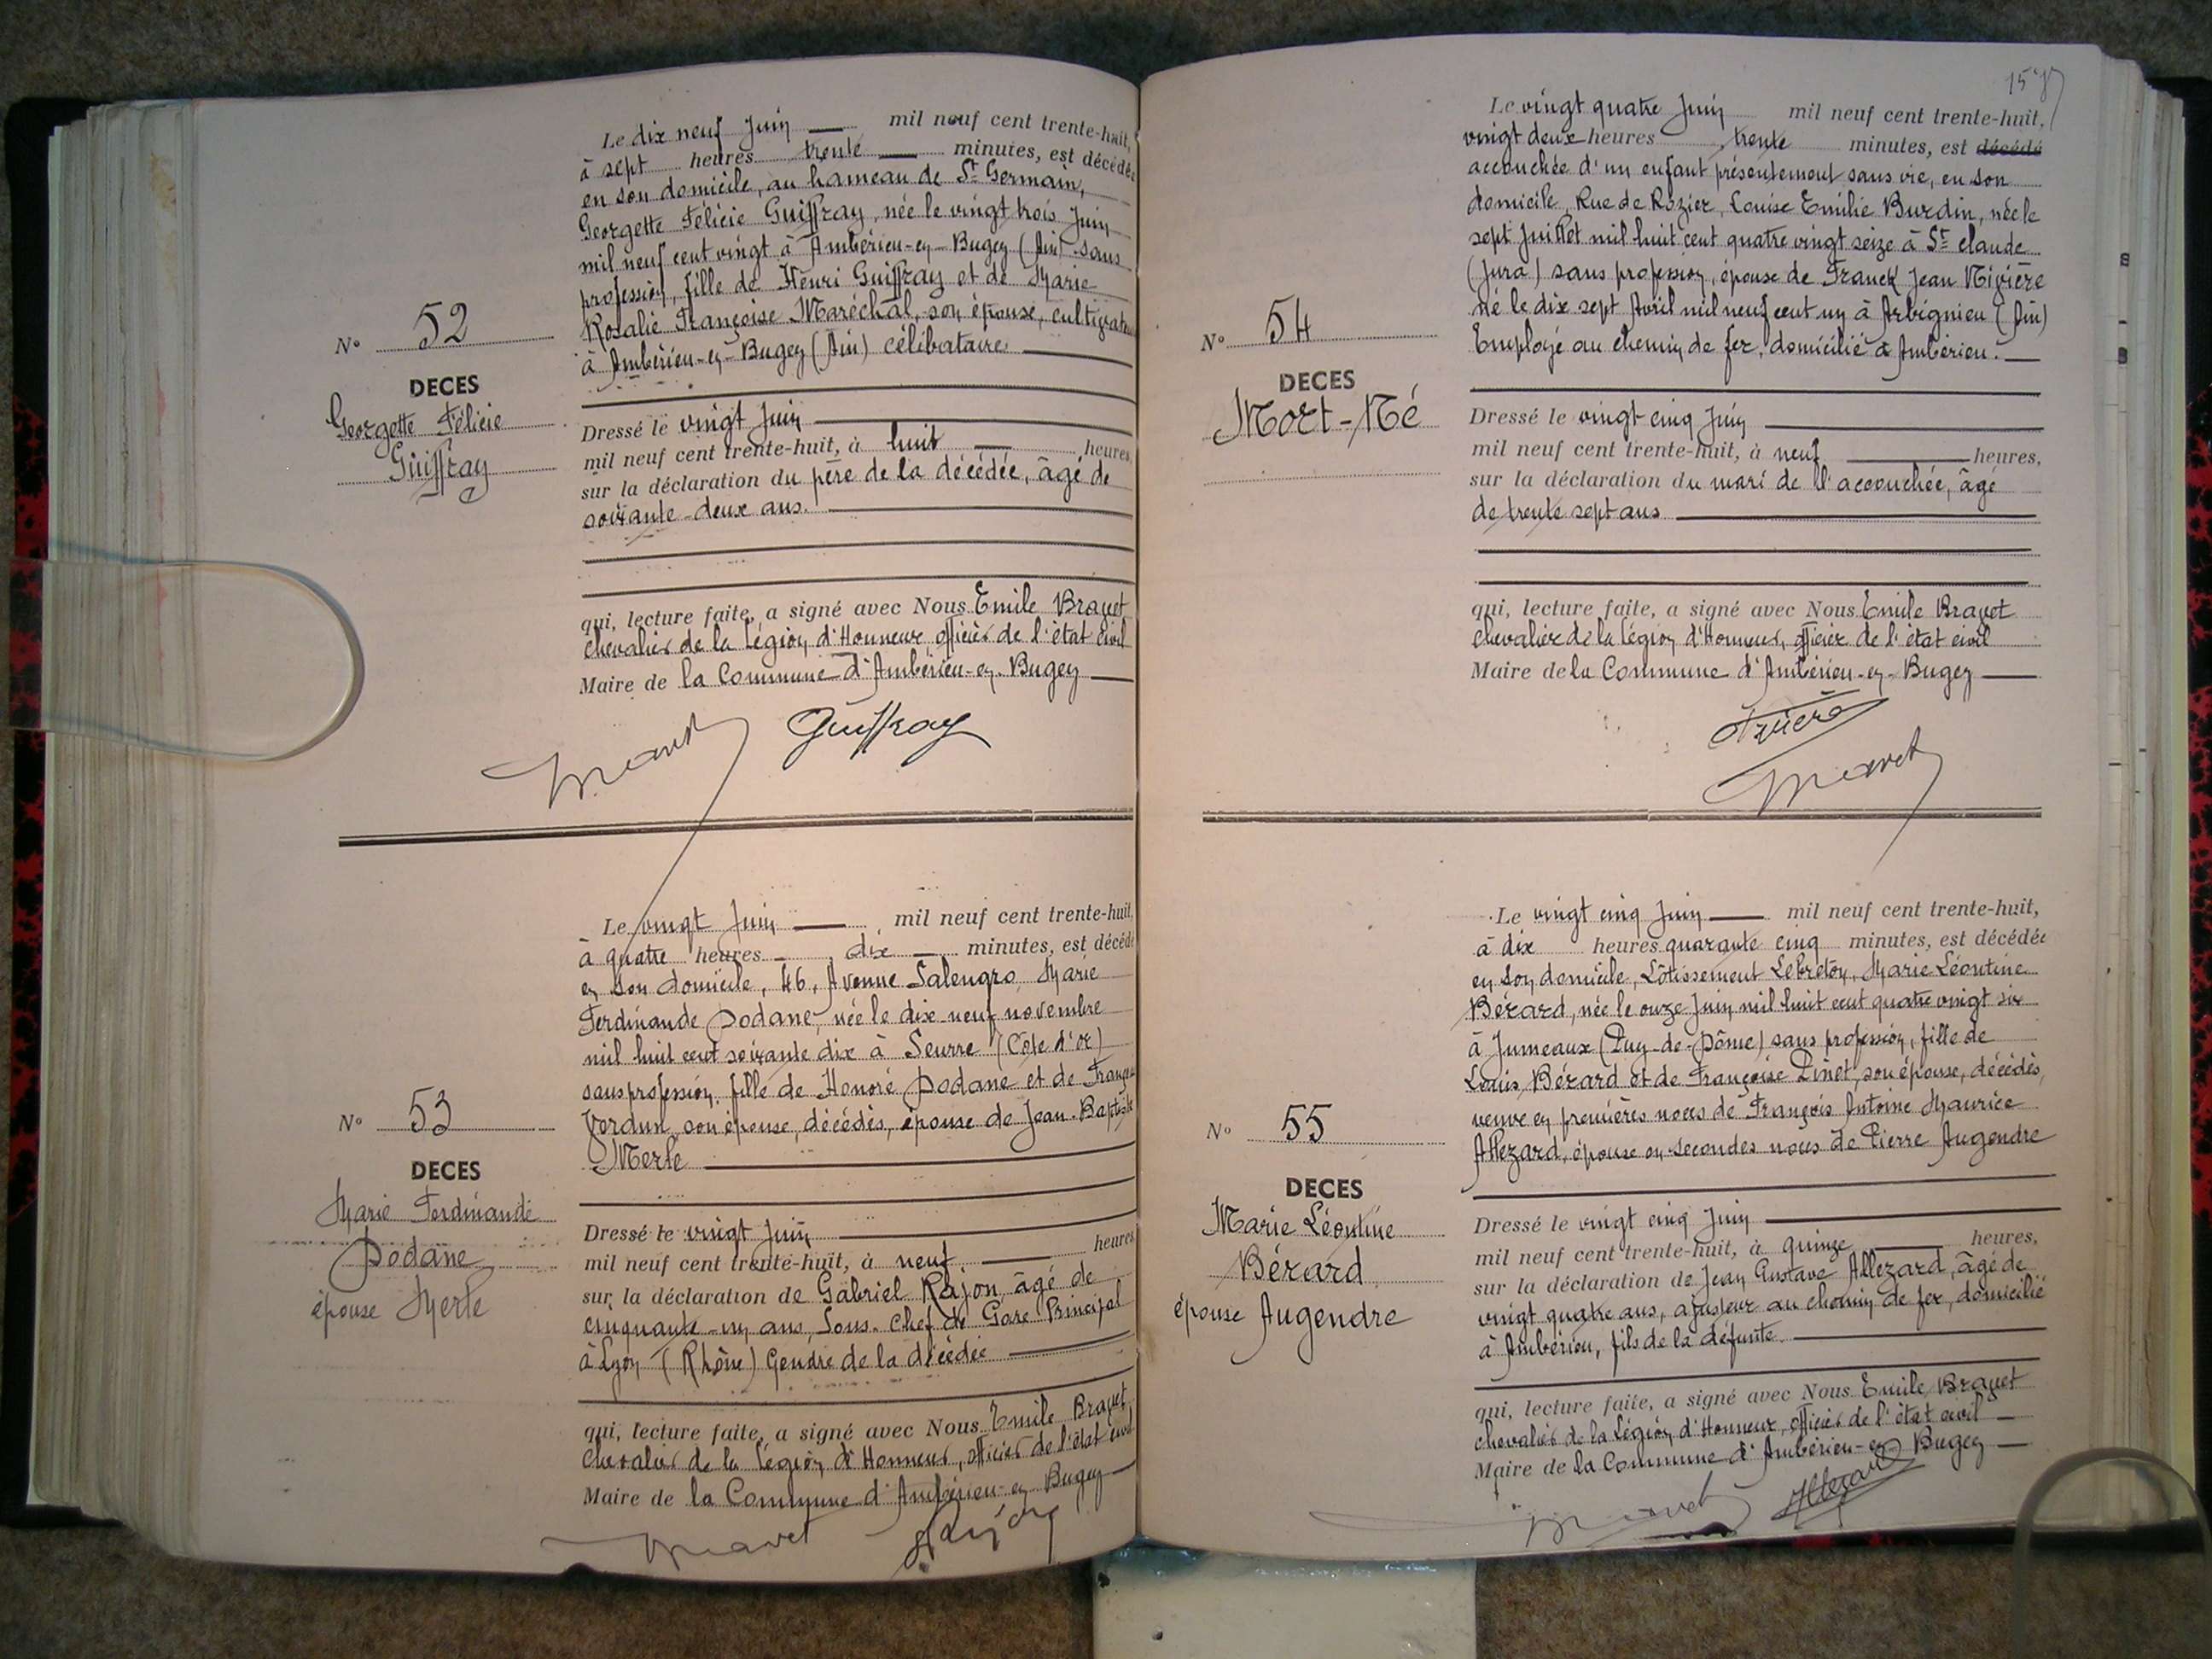 Le dix neuf Juin mil neuf cent trente-huit,
à sept heures trente minutes, est décédée
en son domicile, au hameau de St Germain,
Georgette Félicie Guiffray, née le vingt trois Juin
mil neuf cent vingt à Ambérieu-en-Bugey (Ain) sans
profession, fille de Henri Guiffray et de Marie
Rosalie Françoise Maréchal, son épouse, cultivateurs
à Ambérieu-en-Bugey (Ain) célibataire
No 52
DECES
Georgette Félicie
Guiffray
Dressé le vingt Juin
mil neuf cent trente-huit, à huit heures,
sur la déclaration du père de la décédée, âgé de
soixante-deux ans.
qui, lecture faite, a signé avec Nous Emile Bravet
chevalier de la Légion d'Honneur officier de l'état civil
Maire de la Commune d'Ambérieu-en-Bugey
Bravet Guiffray
Le vingt Juin mil neuf cent trente-huit,
à quatre heures dix minutes, est décédée
en son domicile, 46, Avenue Salengro, Marie
Ferdinande Dodane, née le dix neuf novembre
mil huit cent soixante dix à Seurre (Côte d'or)
sans profession, fille de Honoré Dodane et de Françoise
Verdun, son épouse, décédés, épouse de Jean-Baptiste
Merle
No 53
DECES
Marie Ferdinande
Dodane
épouse Merle
Dressé le vingt Juin
mil neuf cent trente-huit, à neuf heures
sur la déclaration de Gabriel Rajon, âgé de
cinquante-un ans, Sous-Chef de Gare Principal
à Lyon (Rhône) Gendre de la décédée
qui, lecture faite, a signé avec Nous Emile Bravet,
chevalier de la Légion d'Honneur, officier de l'état civil
Maire de la Commune d'Ambérieu-en-Bugey
Bravet Rajon
Le vingt quatre Juin mil neuf cent trente-huit,
vingt deux heures trente minutes, est décédé
accouchée d'un enfant présentement sans vie, en son
domicile, Rue de Rozier, Louise Emilie Burdin, née le
sept Juillet mil huit cent quatre vingt seize à St Claude
(Jura) sans profession, épouse de Franck Jean Rivière
né le dix sept Avril mil neuf cent un à Arbignieu (Ain)
Employé au chemin de fer, domicilié à Ambérieu.
No 54
DECES
Mort-Né
Dressé le vingt cinq Juin
mil neuf cent trente-huit, à neuf heures,
sur la déclaration du mari de l'accouchée, âgé
de trente sept ans
qui, lecture faite, a signé avec Nous Emile Bravet
chevalier de la Légion d'Honneur, officier de l'état civil
Maire de la Commune d'Ambérieu-en-Bugey
Rivière
Bravet
Le vingt cinq Juin mil neuf cent trente-huit,
à dix heures quarante cinq minutes, est décédée
en son domicile, Lotissement Lebreton, Marie Léontine
Bérard, née le onze Juin mil huit cent quatre vingt six
à Jumeaux (Puy-de-Dôme) sans profession, fille de
Louis Bérard et de Françoise Pinet, son épouse, décédés,
veuve en premières noces de François Antoine Maurice
Allezard, épouse en secondes noces de Pierre Augendre
No 55
DECES
Marie Léontine
Bérard
épouse Augendre
Dressé le vingt cinq Juin
mil neuf cent trente-huit, à quinze heures,
sur la déclaration de Jean Gustave Allezard, âgé de
vingt quatre ans, ajusteur au chemin de fer, domicilié
à Ambérieu, fils de la défunte.
qui, lecture faite, a signé avec Nous Emile Bravet
chevalier de la Légion d'Honneur, officier de l'état civil
Maire de la Commune d'Ambérieu-en-Bugey
Bravet Allezard